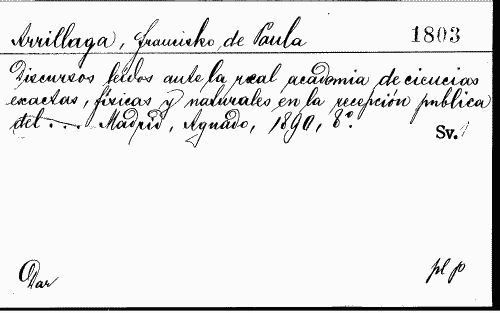 Arrillaga, Francisko de Paula 1803
Discursos leidos ante la real academia de ciencias
exactas, físicas y naturales en la recepción publica
del.... Madrid, Aguado, 1890, 8º.
Sv.
Dar pl p